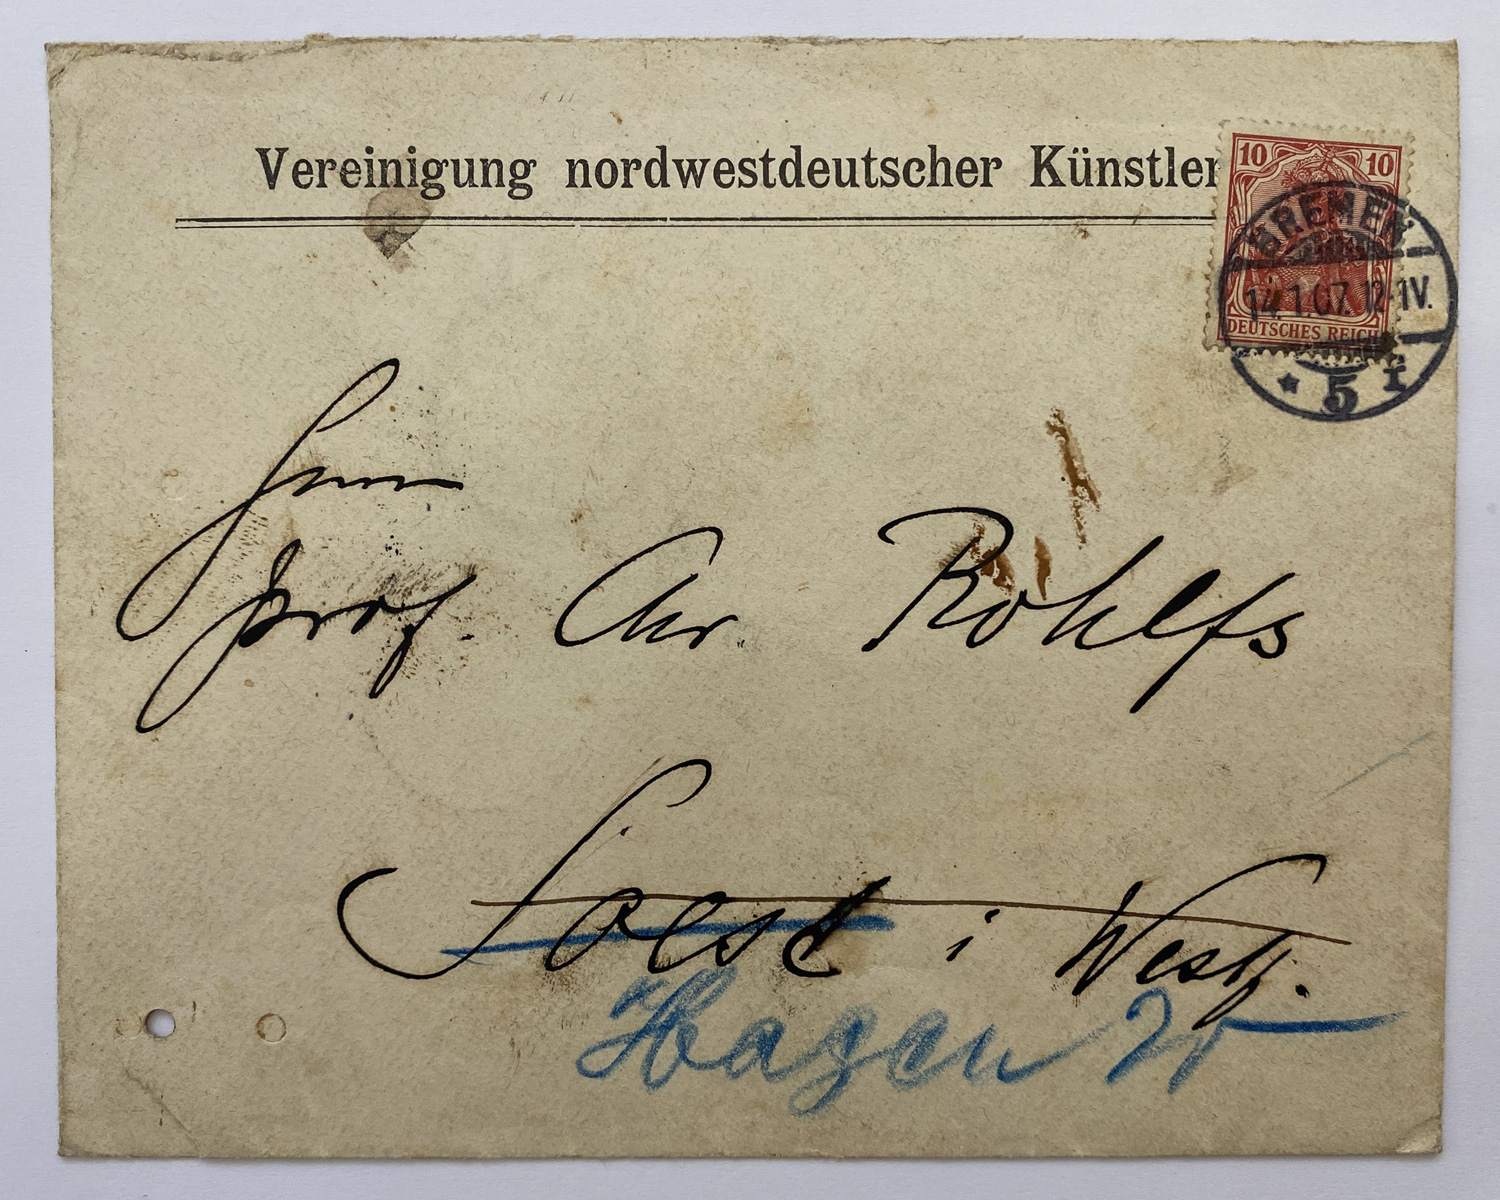 Vereinigung nordwestdeutscher Künstler
10 10
DEUTSCHES REICH
BREMEN
14.1.07. 12-1V.
* 5 I
Herrn
Prof. Chr. Rohlfs
Soest i Westf.
Hagen W